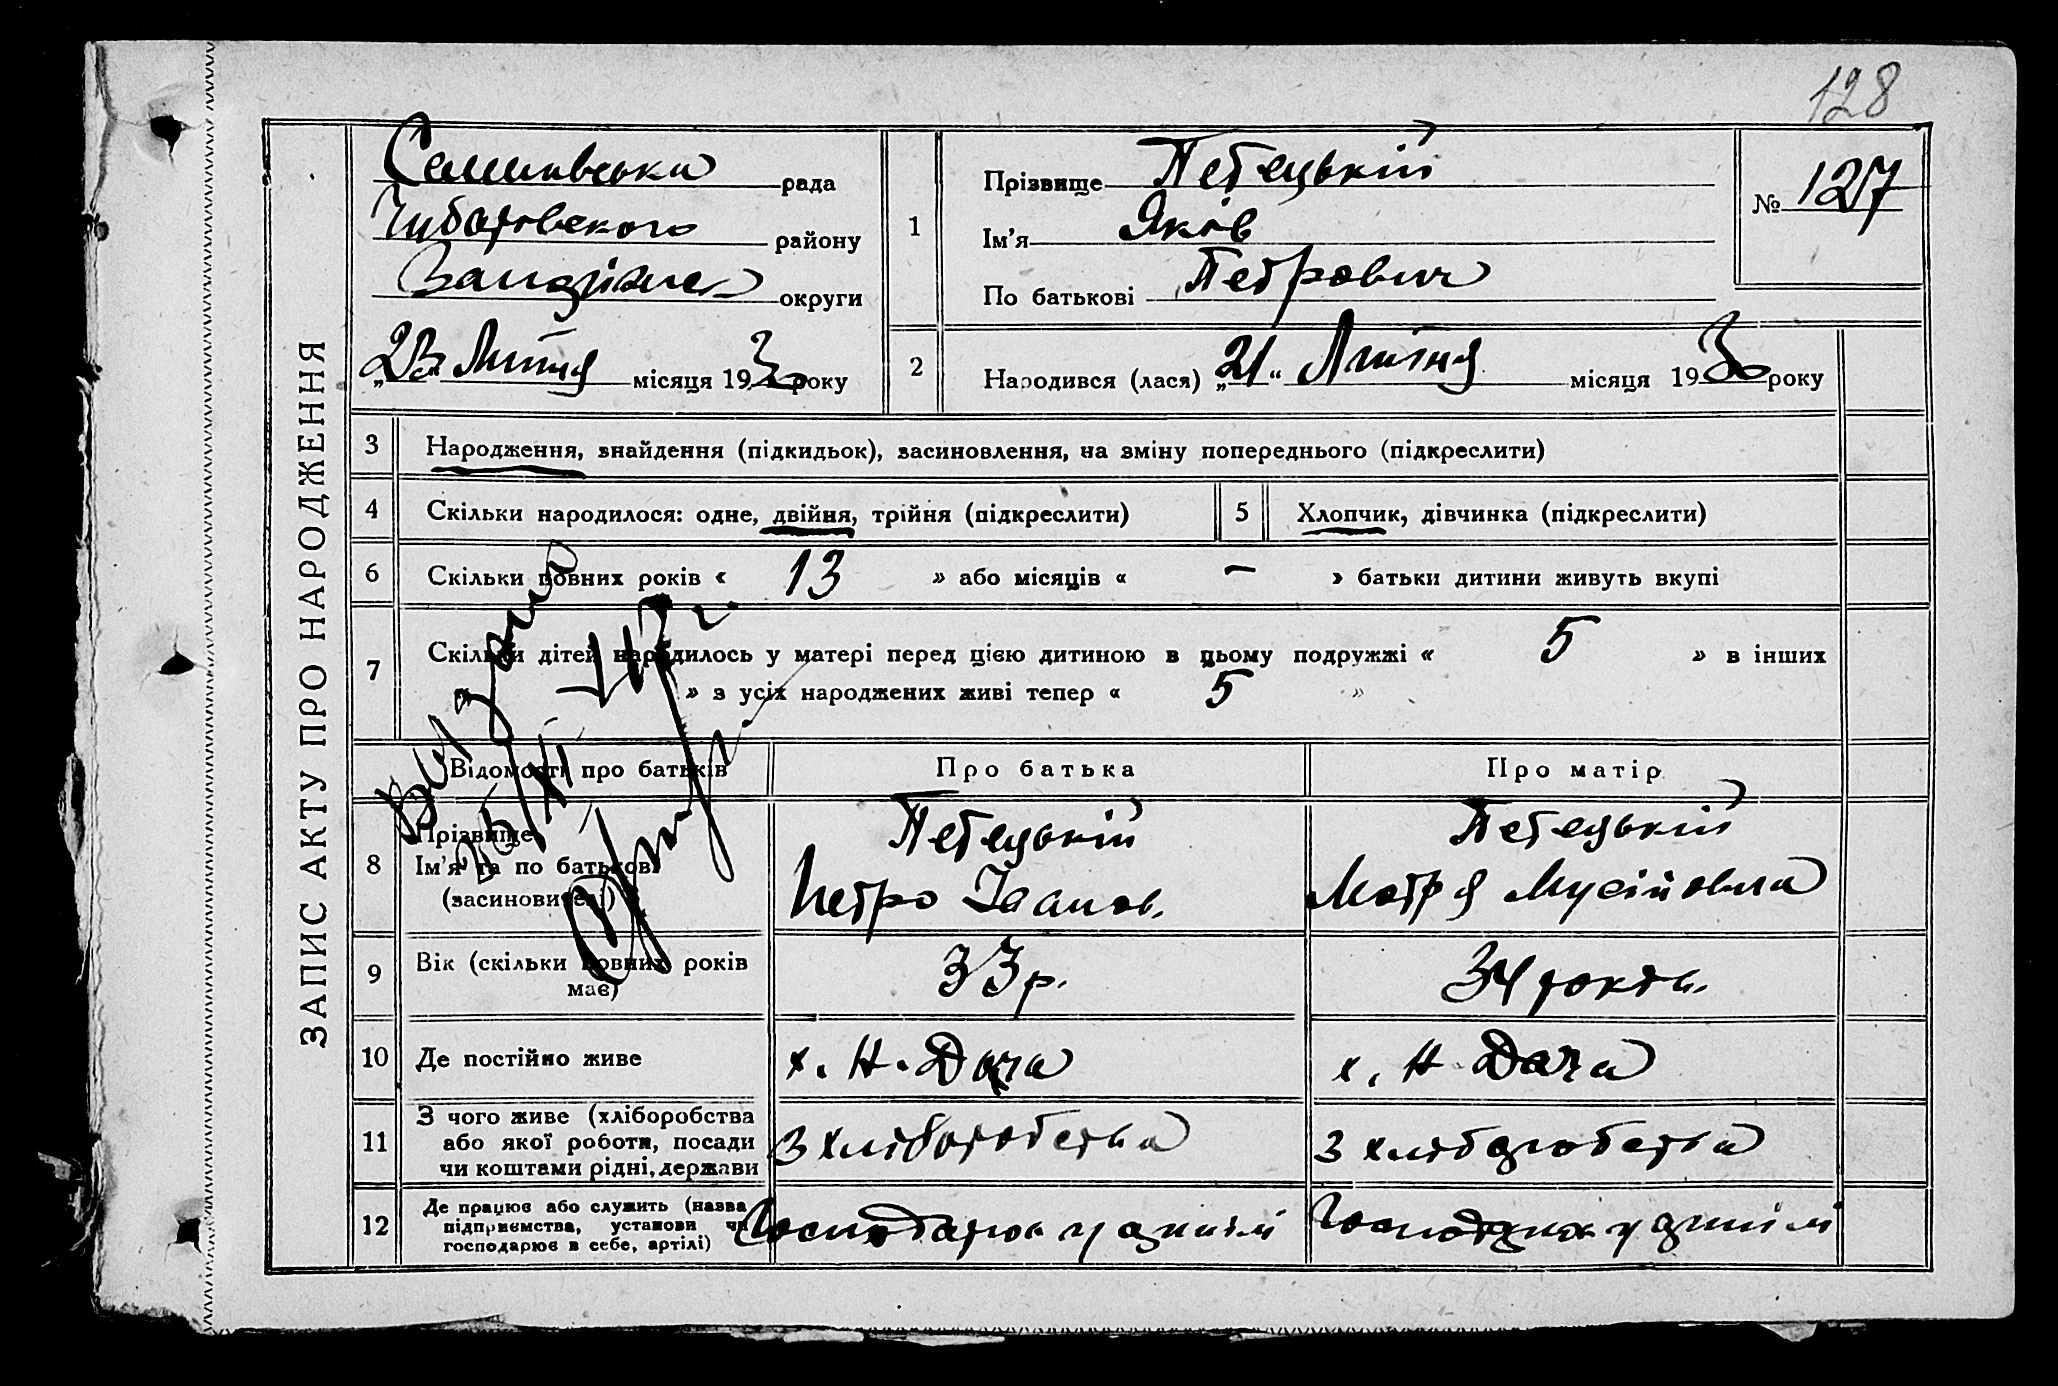 128
ЗАПИС АКТУ ПРО НАРОДЖЕННЯ
рада
району
округи
„23“ Липня місяця 1930 року
1
Прізвище Петецькій
Ім’я Яків
По батькові Петрович
№ 127
2
Народився (лася) „21“ Липня місяця 1930 року
3 Народження, знайдення (підкидьок), засиновлення, на зміну попереднього (підкреслити)
4 Скільки народилося: одне, двійня, трійня (підкреслити)
5 Хлопчик, дівчинка (підкреслити)
6 Скільки повних років « 13 » або місяців « – » батьки дитини живуть вкупі
7 Скільки дітей народилось у матері перед цією дитиною в цьому подружжі « 5 » в інших
» з усіх народжених живі тепер « 5 »
Відомості про батьків
Про батька
Про матір
8 Прізвище
Ім’я та по батькові
(засиновителі)
Петецькій
Петро Іванов.
Петецькій
Мотря Мусійовна
9 Вік (скільки повних років
має)
33 р.
34 роки.
10 Де постійно живе
х. Н. Дача
х. Н. Дача
11 З чого живе (хліборобства
або якої роботи, посади
чи коштами рідні, держави
З хліборобства
З хліборобства
12 Де працює або служить (назва
підприємства, установи чи
господарює в себе, артілі)